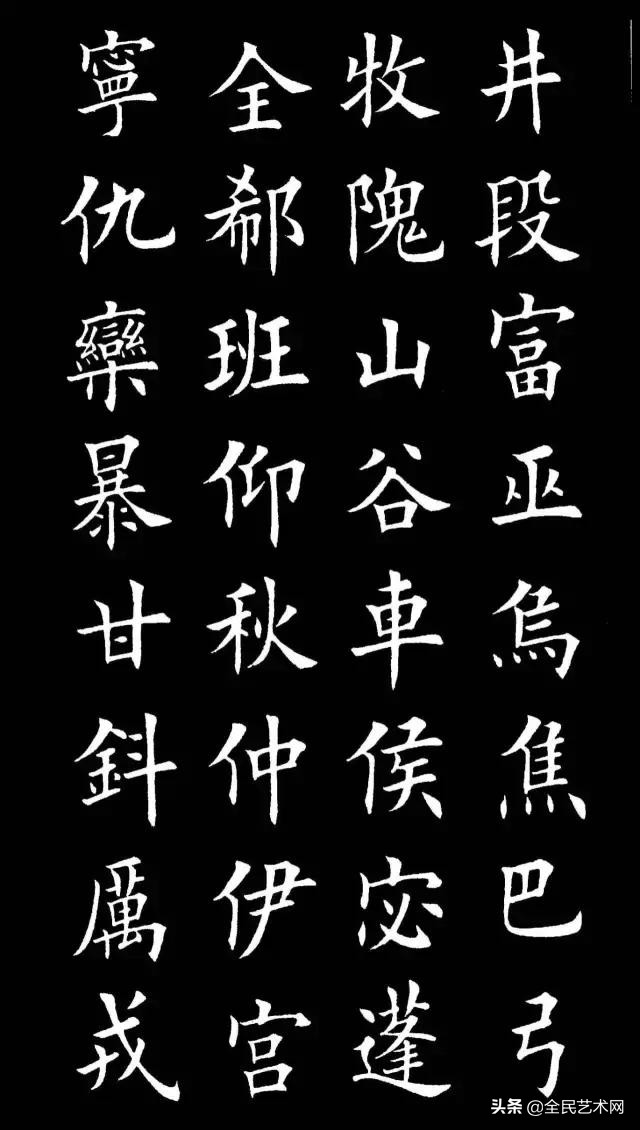 井段富巫烏焦巴弓
牧隗山谷車侯宓蓬
全郗班仰秋仲伊宫
寧仇欒暴甘鈄厲戎
头条 @全民艺术网